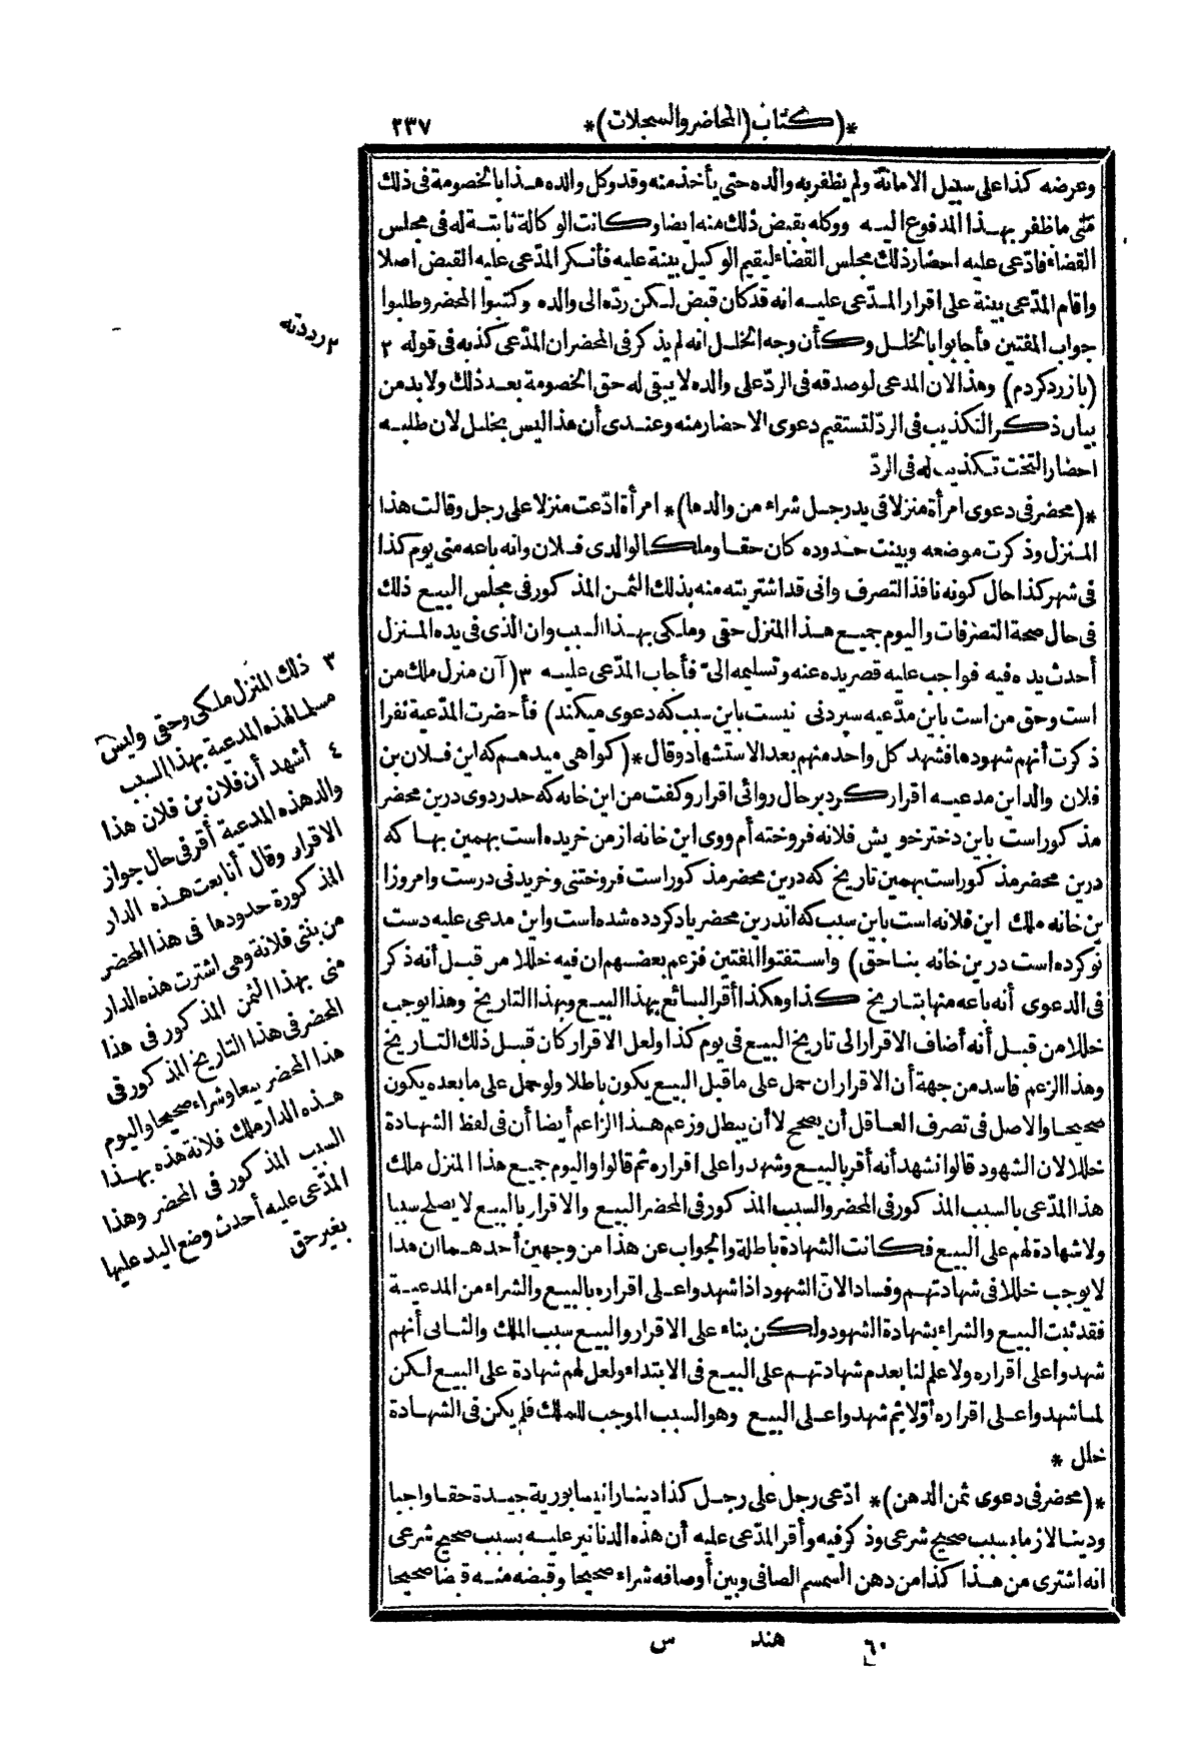 *(كتاب (المحاضر والسجلات)* ٢٣٧
وعرضه كذا على سبيل الامانة ولم يظفر به والده حتى يأخذ منه وقد وكل والده هذا بالخصومة فى ذلك
متى ما ظفر بهذا المدفوع اليه ووكله بقبض ذلك منه ايضا وكانت الوكالة ثابتة له فى مجلس
القضاء فادّعى عليه احضار ذلك مجلس القضاء ليقيم الوكيل بينة عليه فأنكر المدّعى عليه القبض أصلا
واقام المدّعى بينة على اقرار المدّعى عليه انه قد كان قبض لكن ردّه الى والده وكتبوا المحضر وطلبوا
جواب المفتين فأجابوا بالخلل وكأن وجه الخلل انه لم يذكر فى المحضر ان المدّعى كذبه فى قوله ٢
(باز رد كردم) وهذا لان المدعى لو صدقه فى الردّ على والده لا يبقى له حق الخصومة بعد ذلك ولا بد من
بيان ذكر التكذيب فى الردّ لتستقيم دعوى الاحضار منه وعندى أن هذا ليس بخلل لان طلبه
احضار التخت تكذيب له فى الردّ
*(محضر فى دعوى امرأة منزلا فى يد رجل شراء من والدها)* امرأة ادّعت منزلا على رجل وقالت هذا
المنزل وذكرت موضعه وبينت حدوده كان حقا وملكا لوالدى فلان وانه باعه منى يوم كذا
فى شهر كذا حال كونه نافذ التصرف وانى قد اشتريته منه بذلك الثمن المذكور فى مجلس البيع ذلك
فى حال صحة التصرفات واليوم جميع هذا المنزل حقى وملكى بهذا السبب وان الذى فى يده المنزل
أحدث يده فيه فواجب عليه قصر يده عنه وتسليمه الىّ فأجاب المدّعى عليه ٣ (آن منزل ملك من
است وحق من است باين مدّعيه سپردنى نيست باين سبب كه دعوى ميكند) فأحضرت المدّعية نفرا
ذكرت أنهم شهودها فشهد كل واحد منهم بعد الاستشهاد وقال *(كواهى ميدهم كه اين فلان بن
فلان والد اين مدعيه اقرار كرد بر حال روائى اقرار وكفت من اين خانه كه حدر دوى درين محضر
مذكور است باين دختر خويش فلانه فروخته أم ووى اين خانه از من خريده است بهمين بها كه
درين محضر مذكور است بهمين تاريخ كه درين محضر مذكور است فروختنى وخريدنى درست وامروز ا
ين خانه ملك اين فلانه است باين سبب كه اندرين محضر ياد كرده شده است واين مدعى عليه دست
نو كرده است درين خانه بنا حق) واستفتوا المفتين فزعم بعضهم ان فيه خللا من قبل أنه ذكر
فى الدعوى أنه باعه منها بتاريخ كذا وهكذا أقر البائع بهذا البيع وبهذا التاريخ وهذا يوجب
خللا من قبل أنه أضاف الاقرار الى تاريخ البيع فى يوم كذا ولعل الاقرار كان قبل ذلك التاريخ
وهذا الزعم فاسد من جهة أن الاقرار ان حمل على ما قبل البيع يكون باطلا ولو حمل على ما بعده يكون
صحيحا والاصل فى تصرف العاقل أن يصحح لا أن يبطل وزعم هذا الزاعم أيضا أن فى لفظ الشهادة
خللا لان الشهود قالوا نشهد أنه أقر بالبيع وشهدوا على اقراره ثم قالوا واليوم جميع هذا المنزل ملك
هذا المدّعى بالسبب المذكور فى المحضر والسبب المذكور فى المحضر البيع والاقرار بالبيع لا يصلح سببا
ولا شهادة لهم على البيع فكانت الشهادة باطلة والجواب عن هذا من وجهين أحدهما ان هذا
لا يوجب خللا فى شهادتهم وفساد الانّ الشهود اذا شهدوا على اقراره بالبيع والشراء من المدعية
فقد ثبت البيع والشراء بشهادة الشهود ولكن بناء على الاقرار والبيع سبب الملك والثانى أنهم
شهدوا على اقراره ولا علم لنا بعدم شهادتهم على البيع فى الابتداء ولعل لهم شهادة على البيع لكن
لما شهدوا على اقراره أوّلا ثم شهدوا على البيع وهو السبب الموجب للملك فلم يكن فى الشهادة
خلل *
*(محضر فى دعوى ثمن الدهن)* ادّعى رجل على رجل كذا دينارا نيسابورية جيدة حقا واجبا
ودينا لازما بسبب صحيح شرعى وذكر فيه وأقر المدّعى عليه أن هذه الدنانير عليه بسبب صحيح شرعى
انه اشترى من هذا كذا من دهن السمسم الصافى وبين أوصافه شراء صحيحا وقبضه منه قبضا صحيحا
٦٠ هند س
٢ رددته
٣ ذلك المنزل ملكى وحقى وليس
مسلما لهذه المدعية بهذا السبب
٤ أشهد أن فلان بن فلان هذا
والد هذه المدعية أقر فى حال جواز
الاقرار وقال أنا بعت هذه الدار
المذكورة حدودها فى هذا المحضر
من بنتى فلانة وهى اشترت هذه الدار
منى بهذا الثمن المذكور فى هذا
المحضر فى هذا التاريخ المذكور فى
هذا المحضر بيعا وشراء صحيحا واليوم
هذه الدار ملك فلانة هذه بهذا
السبب المذكور فى المحضر وهذا
المدّعى عليه أحدث وضع اليد عليها
بغير حق